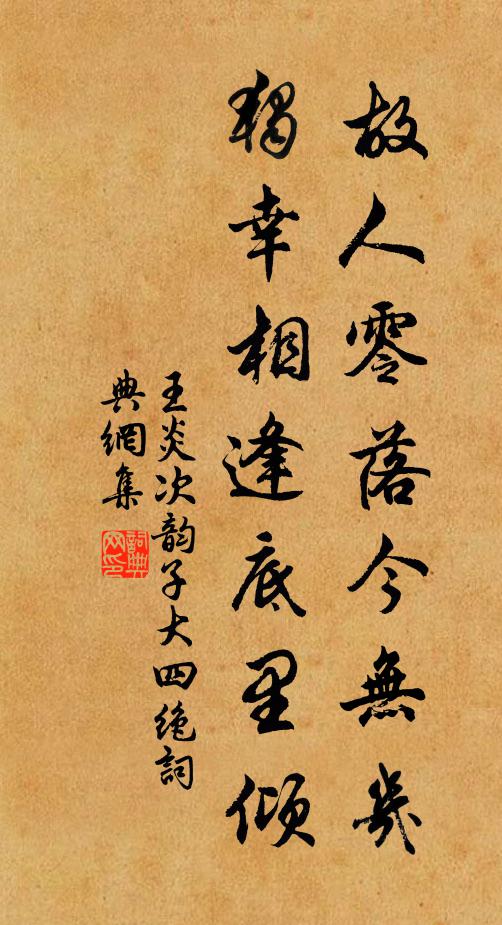 故人零落今無幾
獨幸相逢底里傾
王炎次韵子大四絶詞
典網集
詞典网印